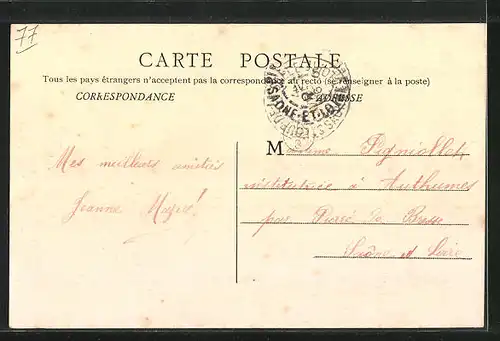 77
CARTE POSTALE
Tous les pays étrangers n'acceptent pas la correspondance au recto (se renseigner à la poste)
CORRESPONDANCE
ADRESSE
SAONE-ET-LOIRE
Mes meilleurs amitiés
Jeanne
Madame Pigniollet,
institutrice à Authumes
par Pierre de Bresse
Saône et Loire